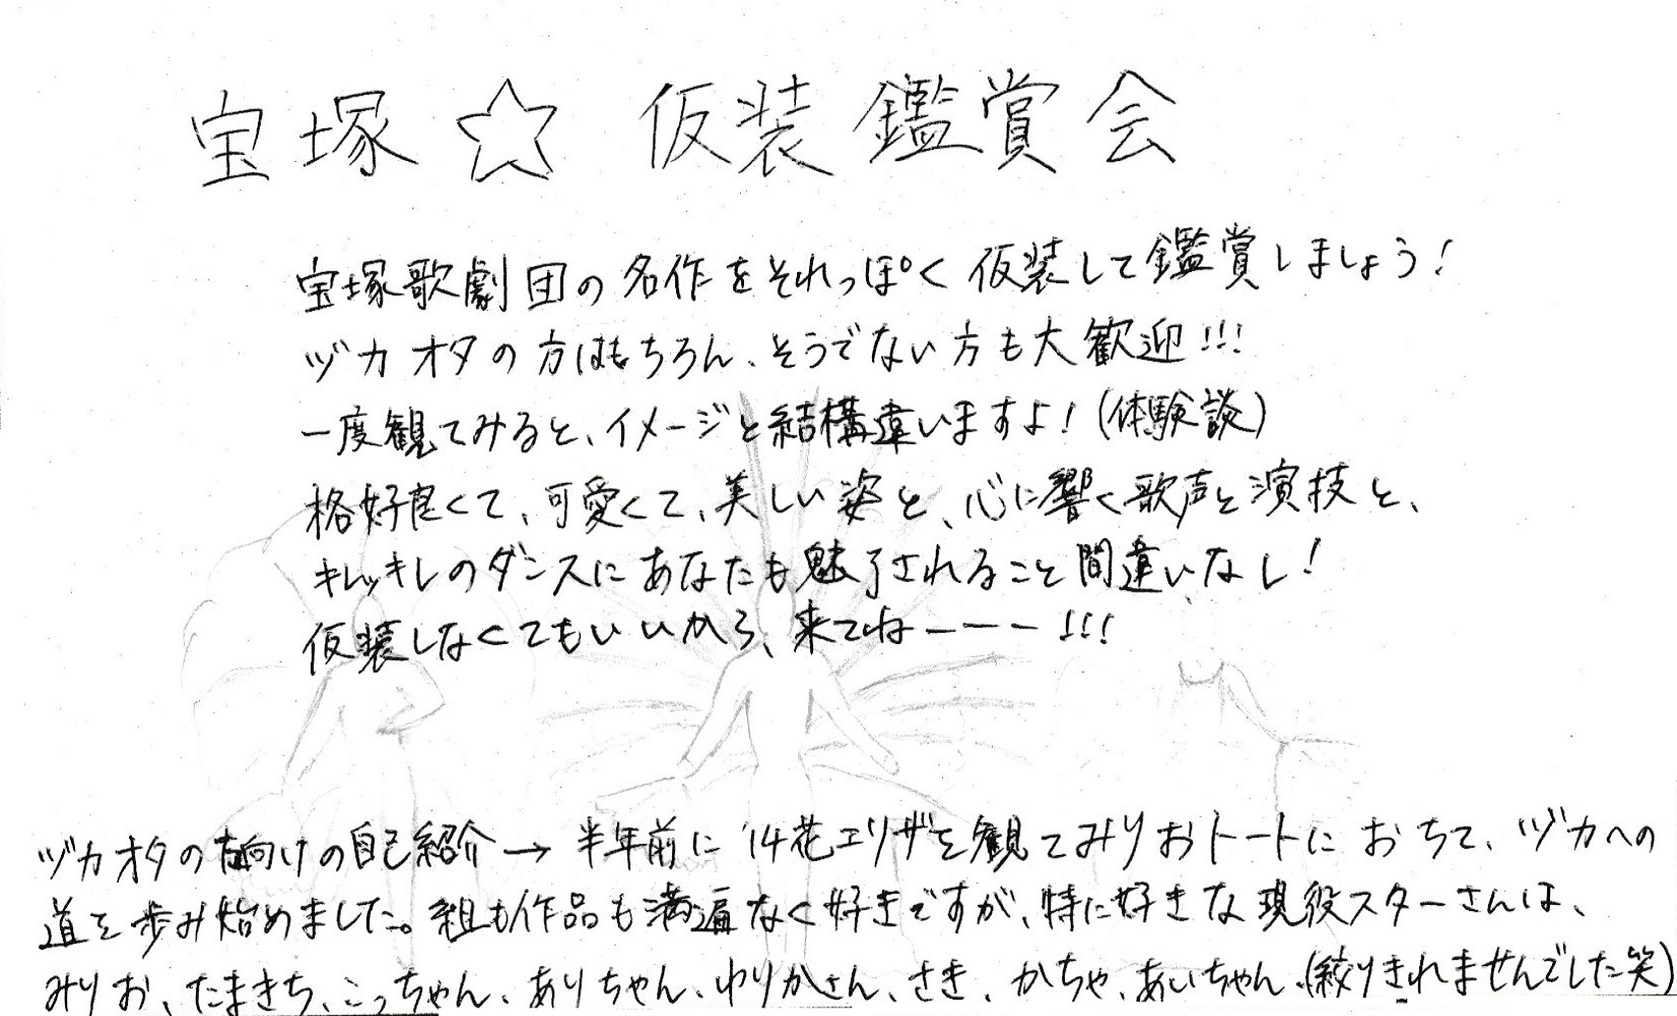 宝塚☆仮装鑑賞会
宝塚歌劇団の名作をそれっぽく仮装して鑑賞しましょう!
ヅカオタの方はもちろん、そうでない方も大歓迎!!!
一度観てみると、イメージと結構違いますよ!(体験談)
格好良くて、可愛くて、美しい姿と、心に響く歌声と演技と、
キレッキレのダンスにあなたも魅了されること間違いなし!
仮装しなくてもいいから、来てねーーー!!!
ヅカオタの方向けの自己紹介→半年前に'14花エリザを観てみりおトートにおちて、ヅカへの
道を歩み始めました。組も作品も満遍なく好きですが、特に好きな現役スターさんは、
みりお、たまきち、こっちゃん、ありちゃん、ゆりかさん、さき、かちゃ、あいちゃん、(絞りきれませんでした笑)